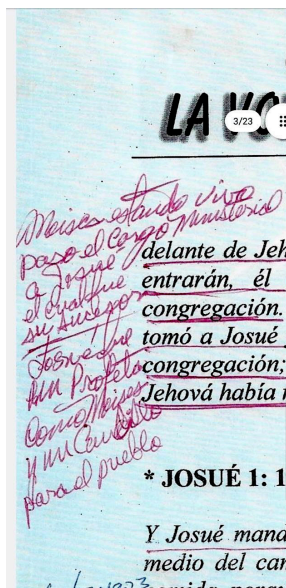 LA VO
3/23
Moises estando vivo
paso el Cargo Ministerial
a Josue
el cual fue
su sucesor
Josué fue
un Profeta
Como Moises
y un Caudillo
para el pueblo
delante de Jeh
entrarán, él
congregación.
tomó a Josué
congregación;
Jehová había
* JOSUÉ 1: 1
Y Josué mand
medio del can